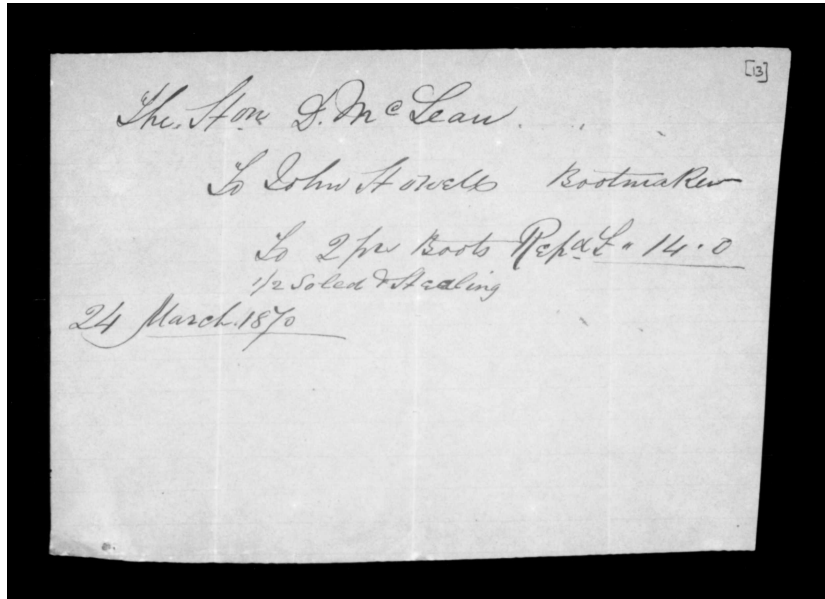 [13]
The Hon D. McLean
To John Howells Bootmaker
To 2 prs Boots Repd £ " 14 . 0
1/2 Soled &
24 March 1870